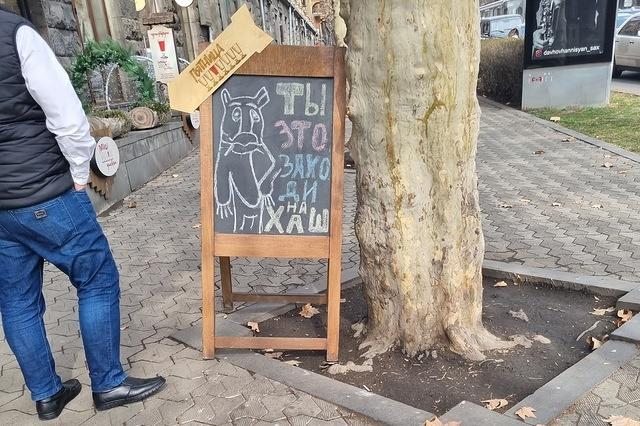 ПЯТНИЦА
ТЫ
ЭТО
ЗАХО
ДИ
НА
ХАШ
davhovhannisyan_sax